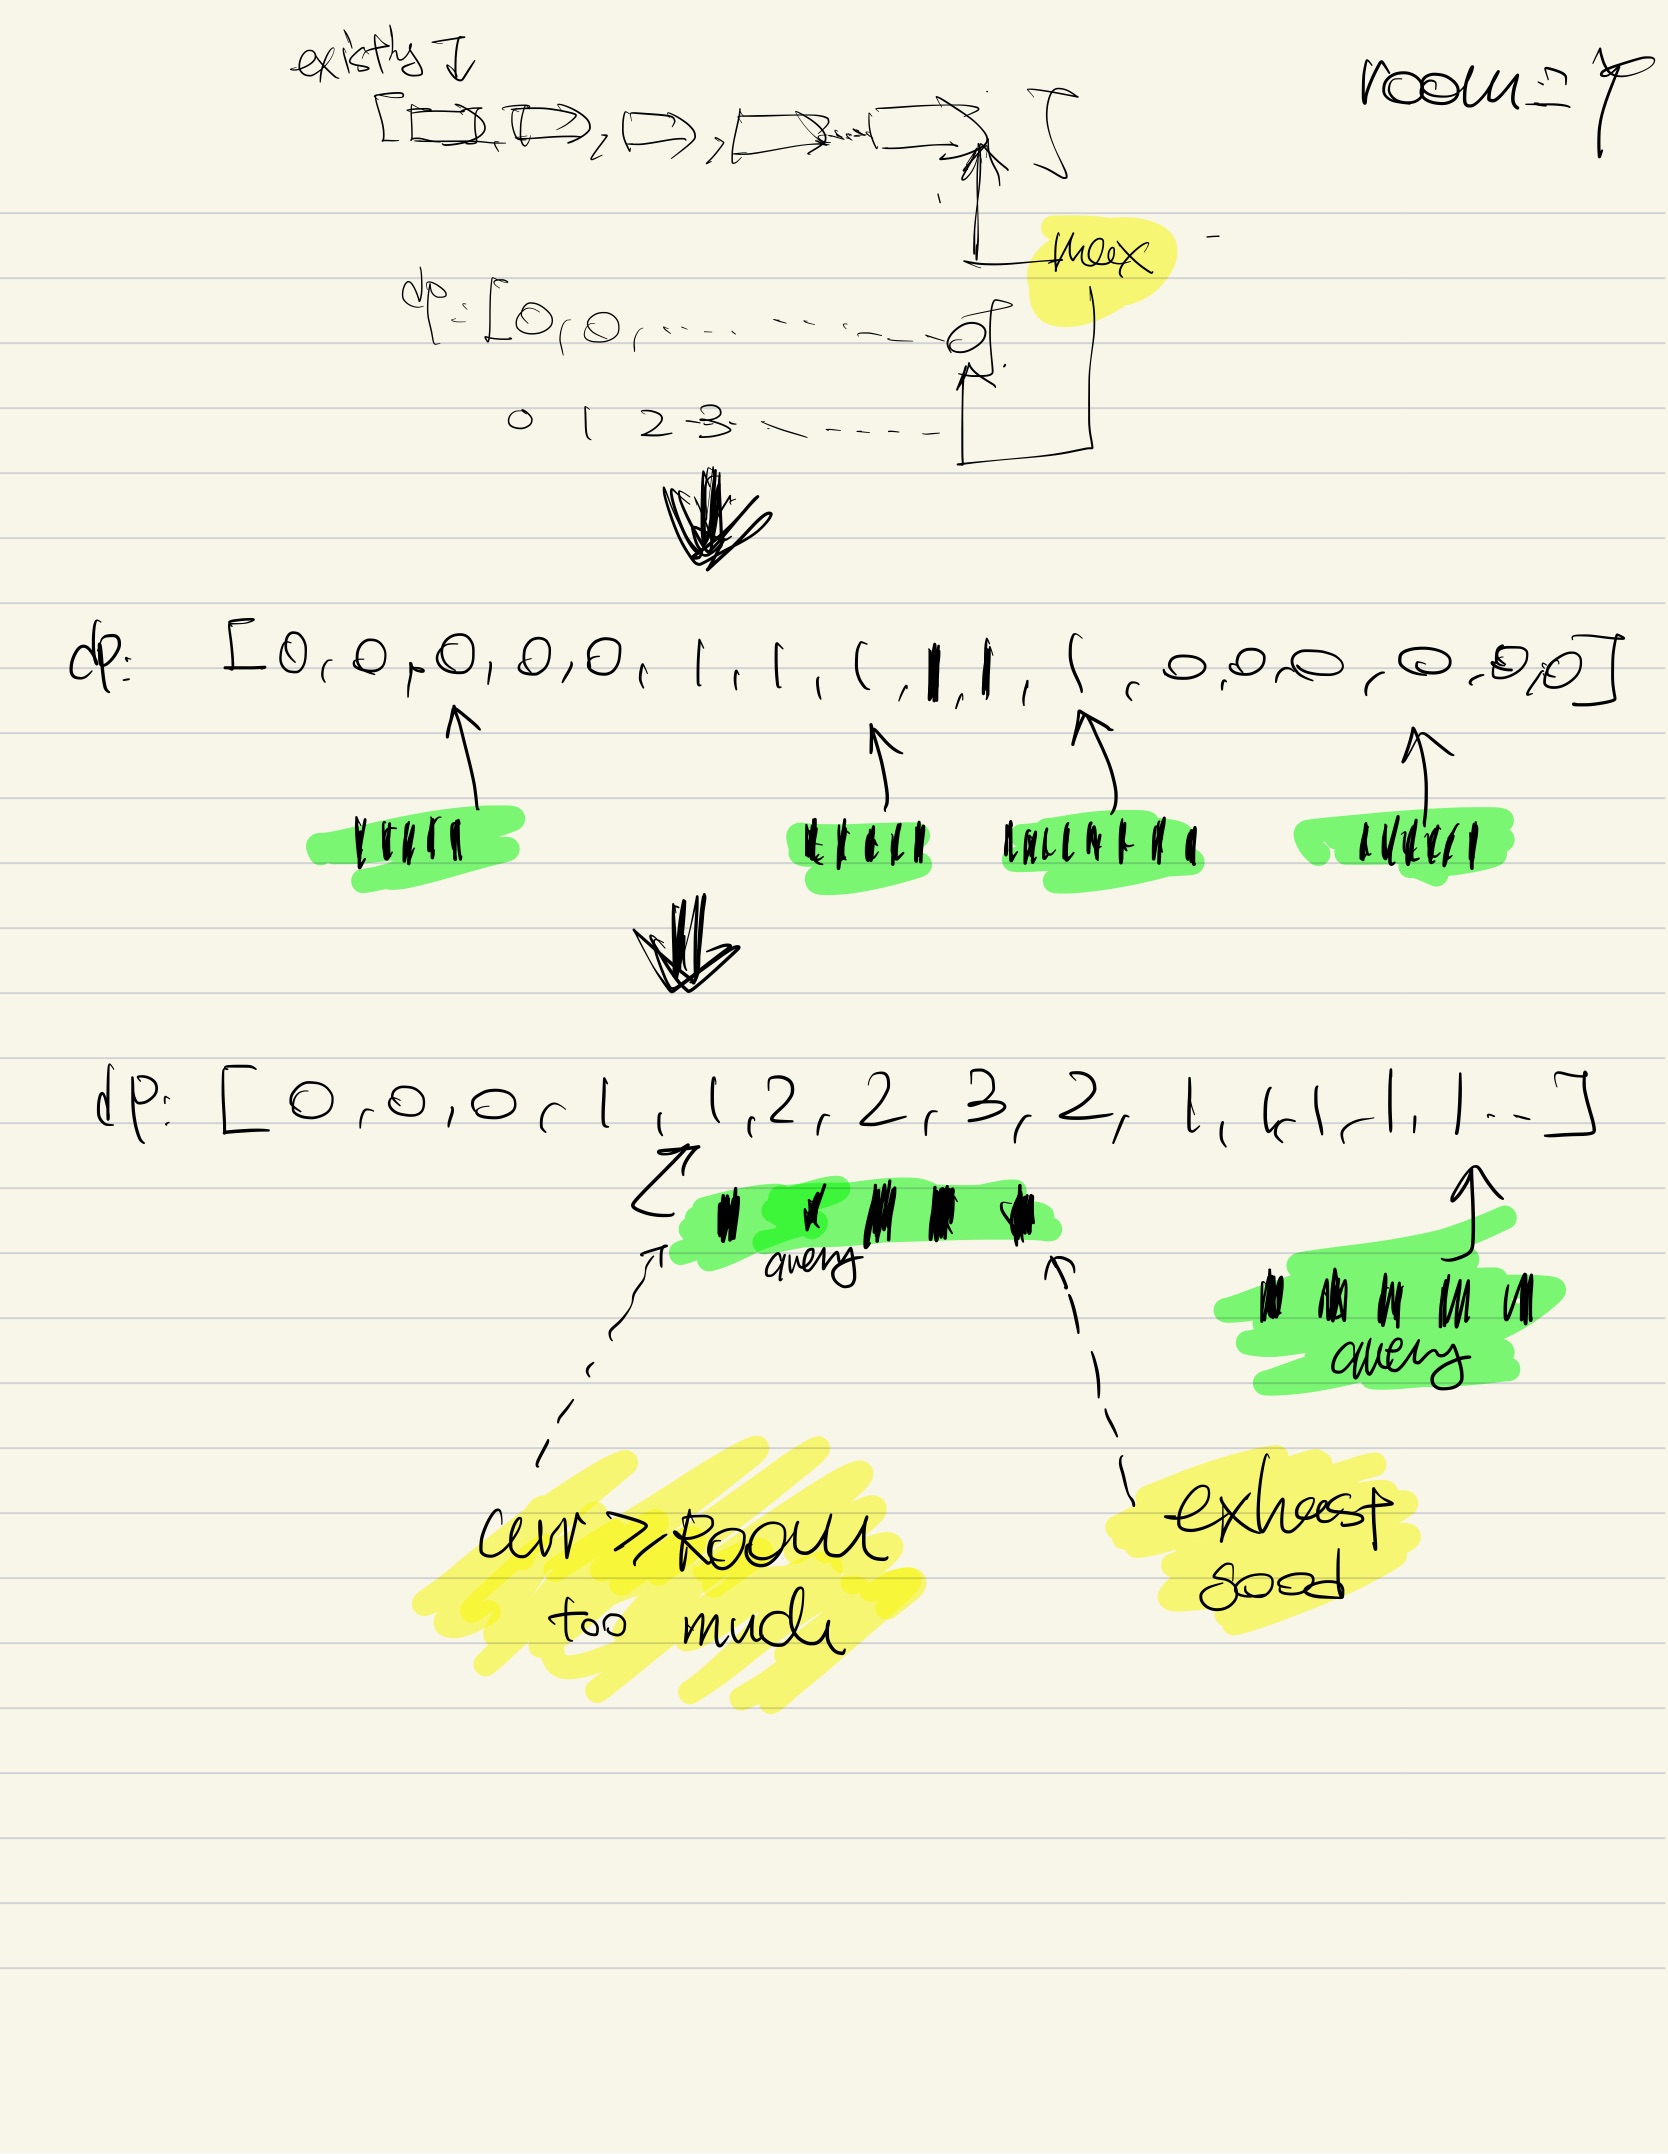 existing ↓
room = 7
[ , , , ..... ]
max
dp: [0, 0, ..... 0].
0 1 2 3 -----
dp: [0, 0, 0, 0, 0, 1, 1, 1, 1, 1, 1, 0, 0, 0, 0, 0, 0]
dp: [0, 0, 0, 1, 1, 2, 2, 3, 2, 1, 1, 1, 1, 1 .. ]
query
query
curr ≥ Room
too much
exhaust
good